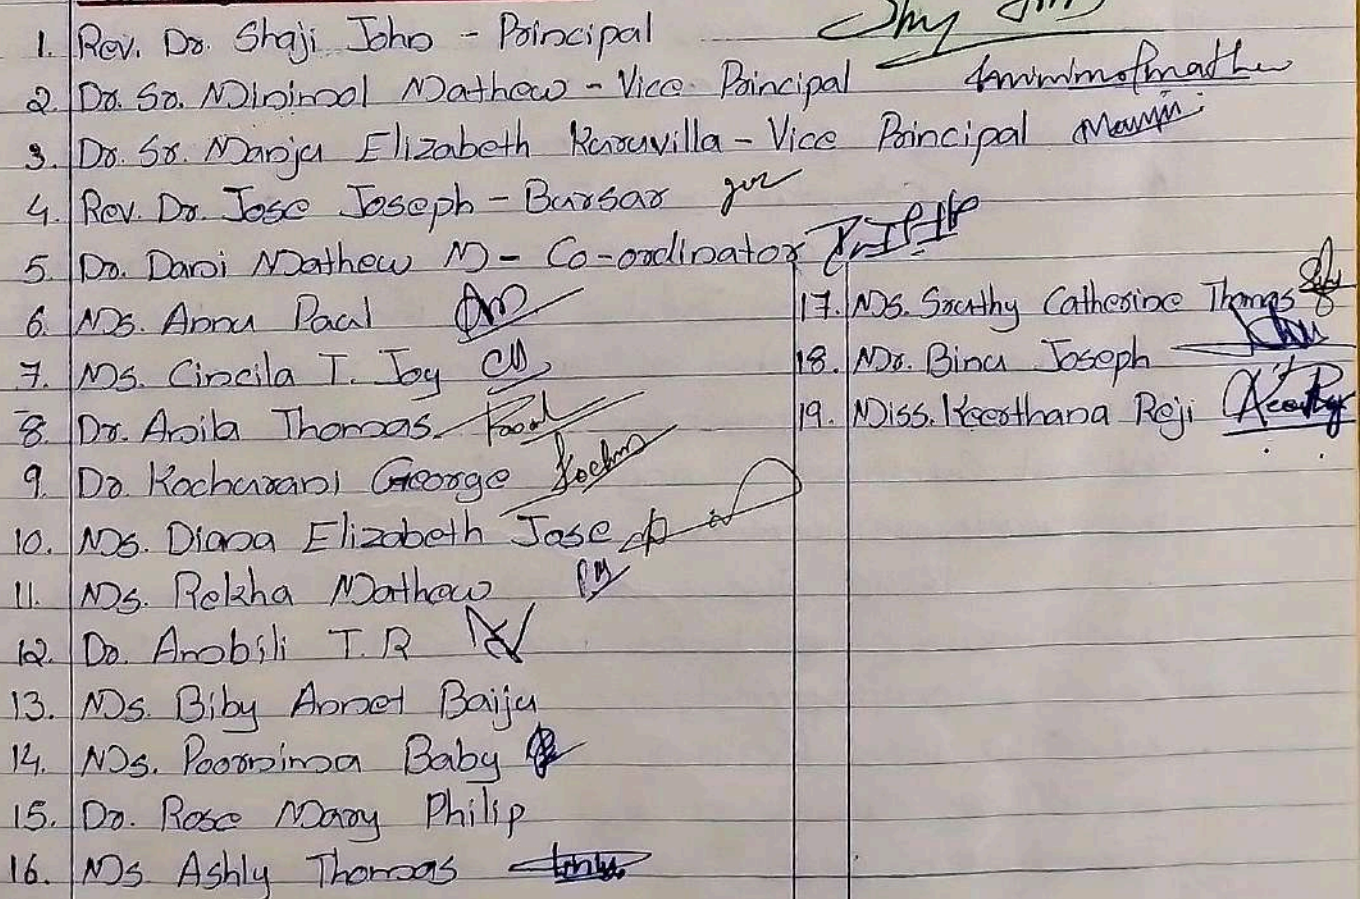 1. Rev. Dr. Shaji John - Principal
2. Dr. Sr. Minimol Mathew - Vice Principal
3. Dr. Sr. Manju Elizabeth Kuruvilla - Vice Principal
4. Rev. Dr. Jose Joseph - Bursar
5. Dr. Dani Mathew M - Co-ordinator
6. Ms. Annu Paul
7. Ms. Cincila T. Joy
8. Dr. Anila Thomas
9. Dr. Kochurani George
10. Ms. Diana Elizabeth Jose
11. Ms. Rekha Mathew
12. Dr. Ambili T.R
13. Ms. Biby Annet Baiju
14. Ms. Poornima Baby
15. Dr. Rose Mary Philip
16. Ms Ashly Thomas
17. Ms. Sruthy Catherine Thomas
18. Mr. Binu Joseph
19. Miss. Keerthana Reji